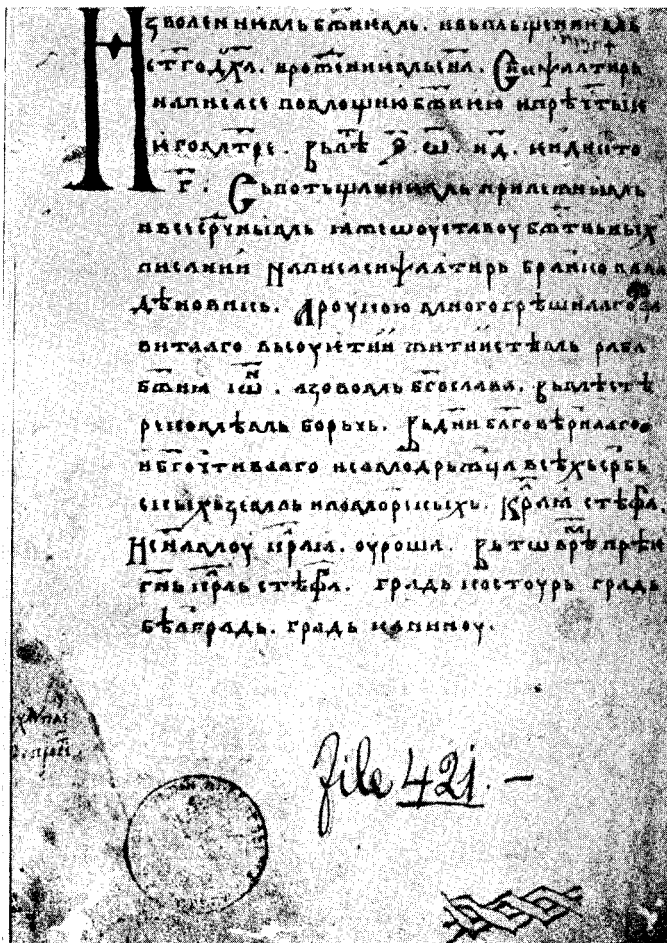 Иꙁволениемь бж҃иемь. и вьпльщениемь
ст҃го дх҃а. и рож҃ениемь сн҃а. Сьи ѱалтирь
написа се помощию бж҃иею и прѣчт҃ыи
и ѥго мт҃ре. Вь лѣт҃ ҂ѕ҃. ѡ҃. нд҃. ендикто
г҃. Сь потьщаниемь прилежныимь
и всесрⷣчныимь ꙗже ѡ оуставоу бж҃твьныхь
писании Написа си ѱалтирь бранко мла
дѣновикь. А роукою многогрѣшнаго ꙁа
витааго вь соуѥтнии житиистѣмь раба
бж҃иꙗ іѡⷩ҇. аꙁовомь бг҃ослава. Вь мѣстѣ
рекомѣмь борьчь. Вь дн҃и бл҃говѣрнааго
и бг҃очт҃иваго и самодрьжца всѣхь срьбь
скыхь ꙁемль и поморⷭ҇кыхь. Крⷧ҇аꙗ стѣфа.
И сн҃а моу крⷧ҇аꙗ. оуроша. Вь тѡ врѣⷨ прѣи
градь костоурь градь
бѣлградь. градь каниноу.
file 421. –